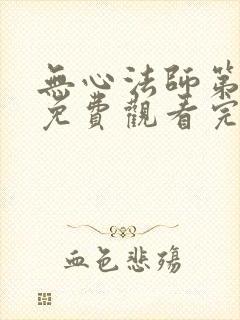 無心法師第
免費觀看完
血色悲殤